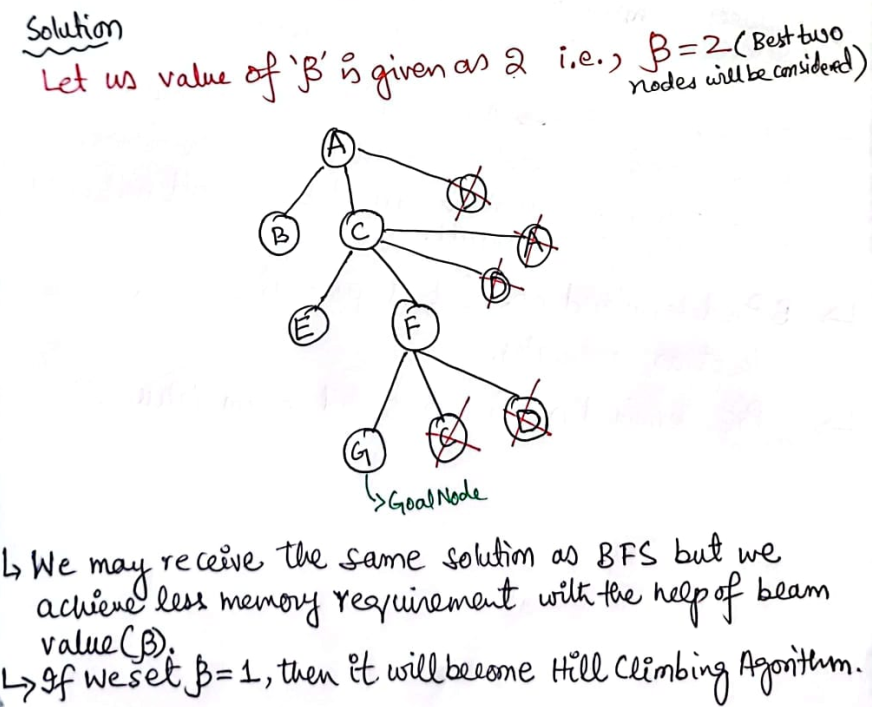 Solution
Let us value of 'β' is given as 2 i.e., β=2 (Best two
nodes will be considered)
A
D
B
C
A
D
E
F
G
C
D
GoalNode
We may receive the same solution as BFS but we
achieve less memory requirement with the help of beam
value (β).
If we set β=1, then it will become Hill Climbing Agorithm.